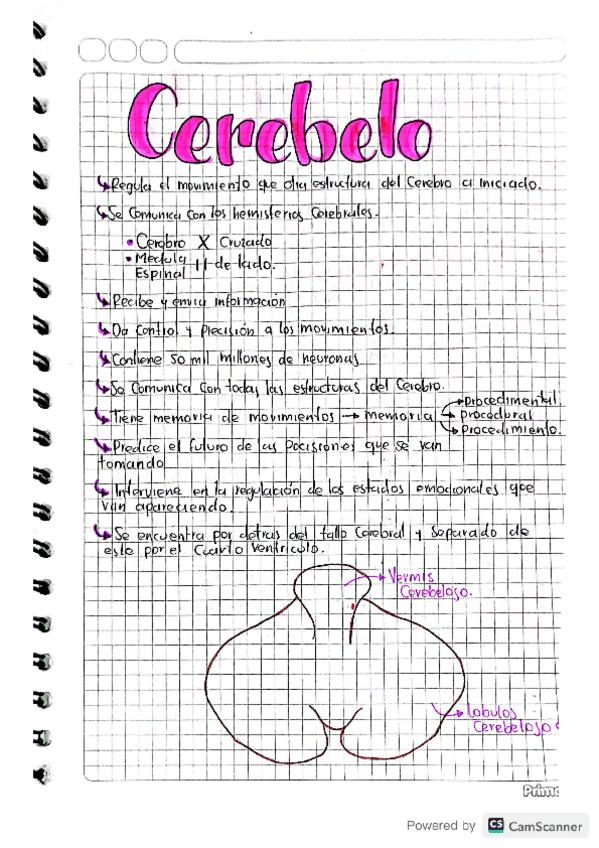 Cerebelo
Regula el movimiento que otra estructura del Cerebro a iniciado.
Se Comunica con los hemisferios Cerebrales.
• Cerebro X Cruzado
• Medula
Espinal || de lado.
Recibe y envia información
Da Control y Precisión a los movimientos.
Contiene 50 mil millones de neuronas
Se Comunica Con todas las estructuras del Cerebro.
Tiene memoria de movimientos → memoria
Procedimental.
Procedural
Procedimiento.
Predice el futuro de las Posiciones que se van
tomando
Interviene en la regulación de los estados emocionales que
van apareciendo.
Se encuentra por detras del tallo Cerebral y Separado de
este por el Cuarto Ventriculo.
Vermis
Cerebeloso.
lobulos
Cerebeloso
Powered by CS CamScanner